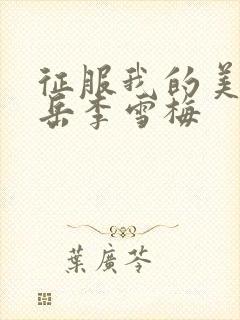 征服我的美
岳李雪梅
葉廣芩